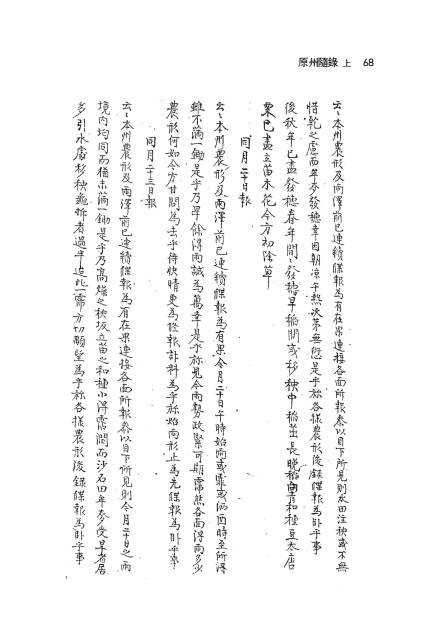 原州隨錄 上 68
云云本州農形及雨澤前已連續牒報爲有在果連接各面所報參以目下所見則水田注秧或不無
惜乾之慮而牟麥發穗幸因朝凉午熱次第無愆是乎旀各樣農形後錄牒報爲臥乎事
後秋牟已盡發穗春牟間間發穗早稻間或移秧中稻茁長晩稻向靑和種豆太唐
粟已盡立苗木花今方初除草
同月二十日報
云云本州農形及雨澤前已連續牒報爲有果今月二十日午時始雨或霏或洒酉時至所得
雖不滿一鋤是乎乃旱餘得雨誠爲萬幸是乎旀見今雨勢政緊可期霈然各面得雨多少
農形何如今方甘間爲去乎待快晴更爲修報計料爲乎旀始雨形止爲先牒報爲臥乎事
同月二十三日報
云云本州農形及雨澤前已連續牒報爲有在果連接各面所報參以目下所見則今月二十日之雨
境內均同而猶未滿一鋤是乎乃高燥之秧坂立苗之和種小得霑潤而沙石田牟麥受旱者居
多引水處移秧龜坼者過半造化一霈方切顒望爲乎旀各樣農形後錄牒報爲臥乎事